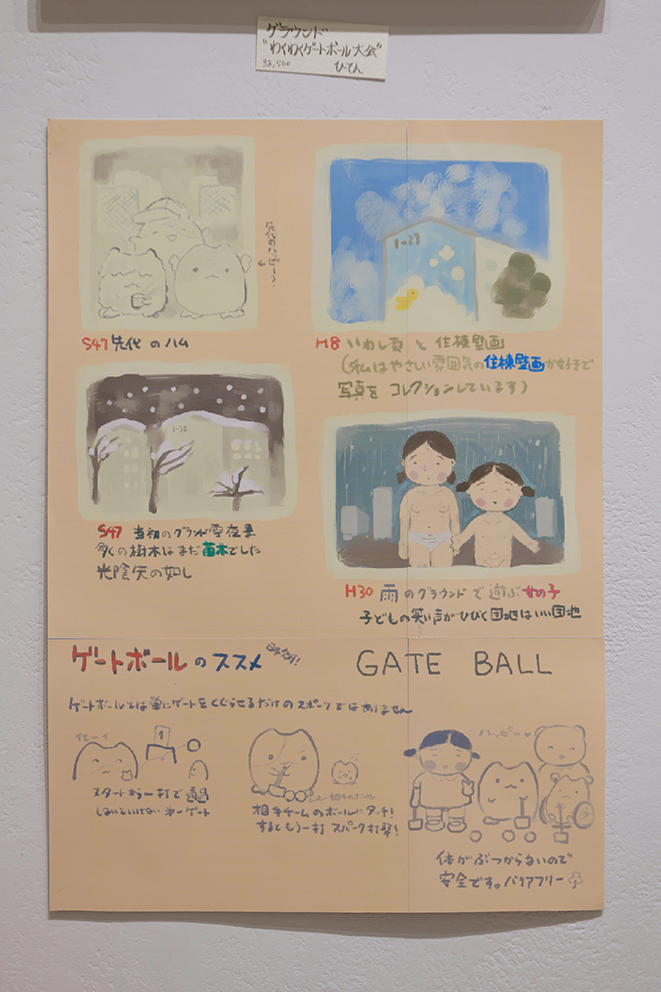 グラウンド
"わくわくゲートボール大会"
38,500 ひでん
先代のハッピー?
S47 先代のハム
1-27
H8 いわし雲と住棟壁画
(私はやさしい雰囲気の住棟壁画が好きで
写真をコレクションしています)
1-28
S47 当初のグランド雪夜景
多くの樹木はまだ苗木でした
光陰矢の如し
H30 雨のグラウンドで遊ぶ女の子
子どもの笑い声がひびく団地はいい団地
ゲートボールのススメ
GATE BALL
ゲートボールとは単にゲートをくぐらせるだけのスポーツではありません
1
スタートから一打で通過
しないといけない第一ゲート
相手のボール
相手チームのボールにタッチ!
するともう一打 スパーク打撃!
ハッピー
体がぶつからないので
安全です。バリアフリー